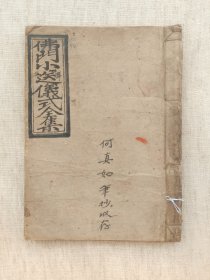 佛門小逸儀式全集
何真如筆抄收存